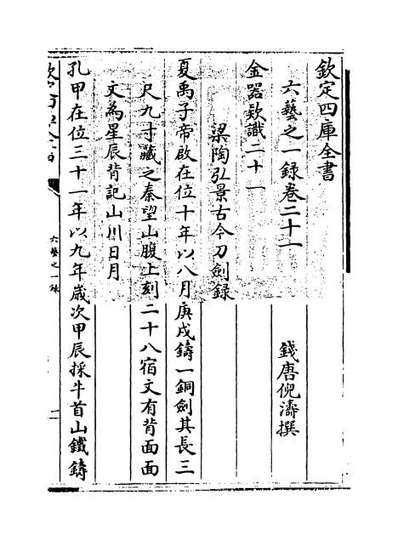 欽定四庫全書
六藝之一錄卷二十一
錢唐倪濤撰
金器欵識二十一
梁陶弘景古今刀劍錄
夏禹子帝啟在位十年以八月庚戌鑄一銅劍其長三
尺九寸藏之秦望山腹上刻二十八宿文有背面面
文為星辰背記山川日月
孔甲在位三十一年以九年歲次甲辰採牛首山鐵鑄
六藝之一錄